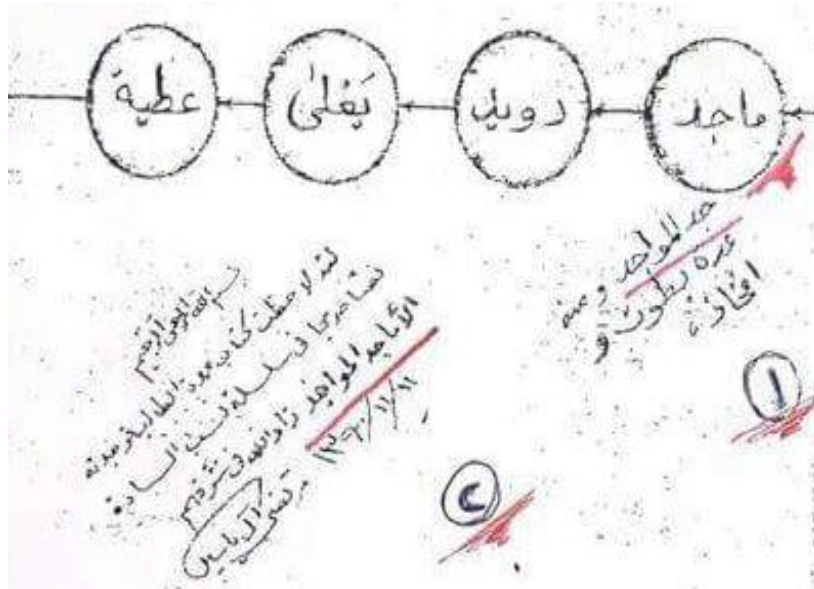 ماجد
دويد
يَعْلىٰ
عطية
جد المواجد ومنه
عدة بطون و
افخاذ
١
بسم الله الرحمن الرحيم
لقد لاحظت كتاب عمدة الطالب فوجدته
نصاً صريحاً في سلسلة نسب السادة
الأماجد المواجد زاد الله في شرفهم
١٣٩٠/١١/١١
مرتضى آل ياسين
٢